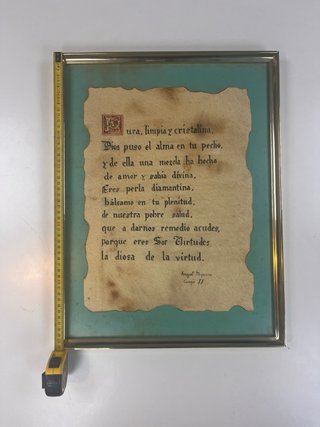 Pura, limpia y cristalina,
Dios puso el alma en tu pecho,
y de ella una mezcla ha hecho
de amor y sabia divina.
Eres perla diamantina,
bálsamo en tu plenitud,
de nuestra pobre salud,
que a darnos remedio acudes,
porque eres Sor Virtudes
la diosa de la virtud.
Angel